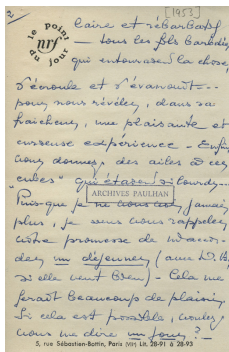 2
[1953]
le point
nrf
du jour
faire et rébarbatif
— tous les fils barbelés
qui entouraient la chose,
s'écroule et s'évanouit..
pour nous révéler, dans sa
fraîcheur, une plaisante et
curieuse expérience - Enfin
vous donnez des ailes à ces
"cubes" qui étaient si lourds..
ARCHIVES PAULHAN
Puis-que je ne vous vois jamais
plus, je veux vous rappeler
votre promesse de
un déjeuner (avec D. B,
si elle veut bien) - Cela me
ferait beaucoup de plaisir.
Si cela est possible, voulez
vous me dire un jour? -
5, rue Sébastien-Bottin, Paris (VIIe) Lit. 28-91 à 28-93